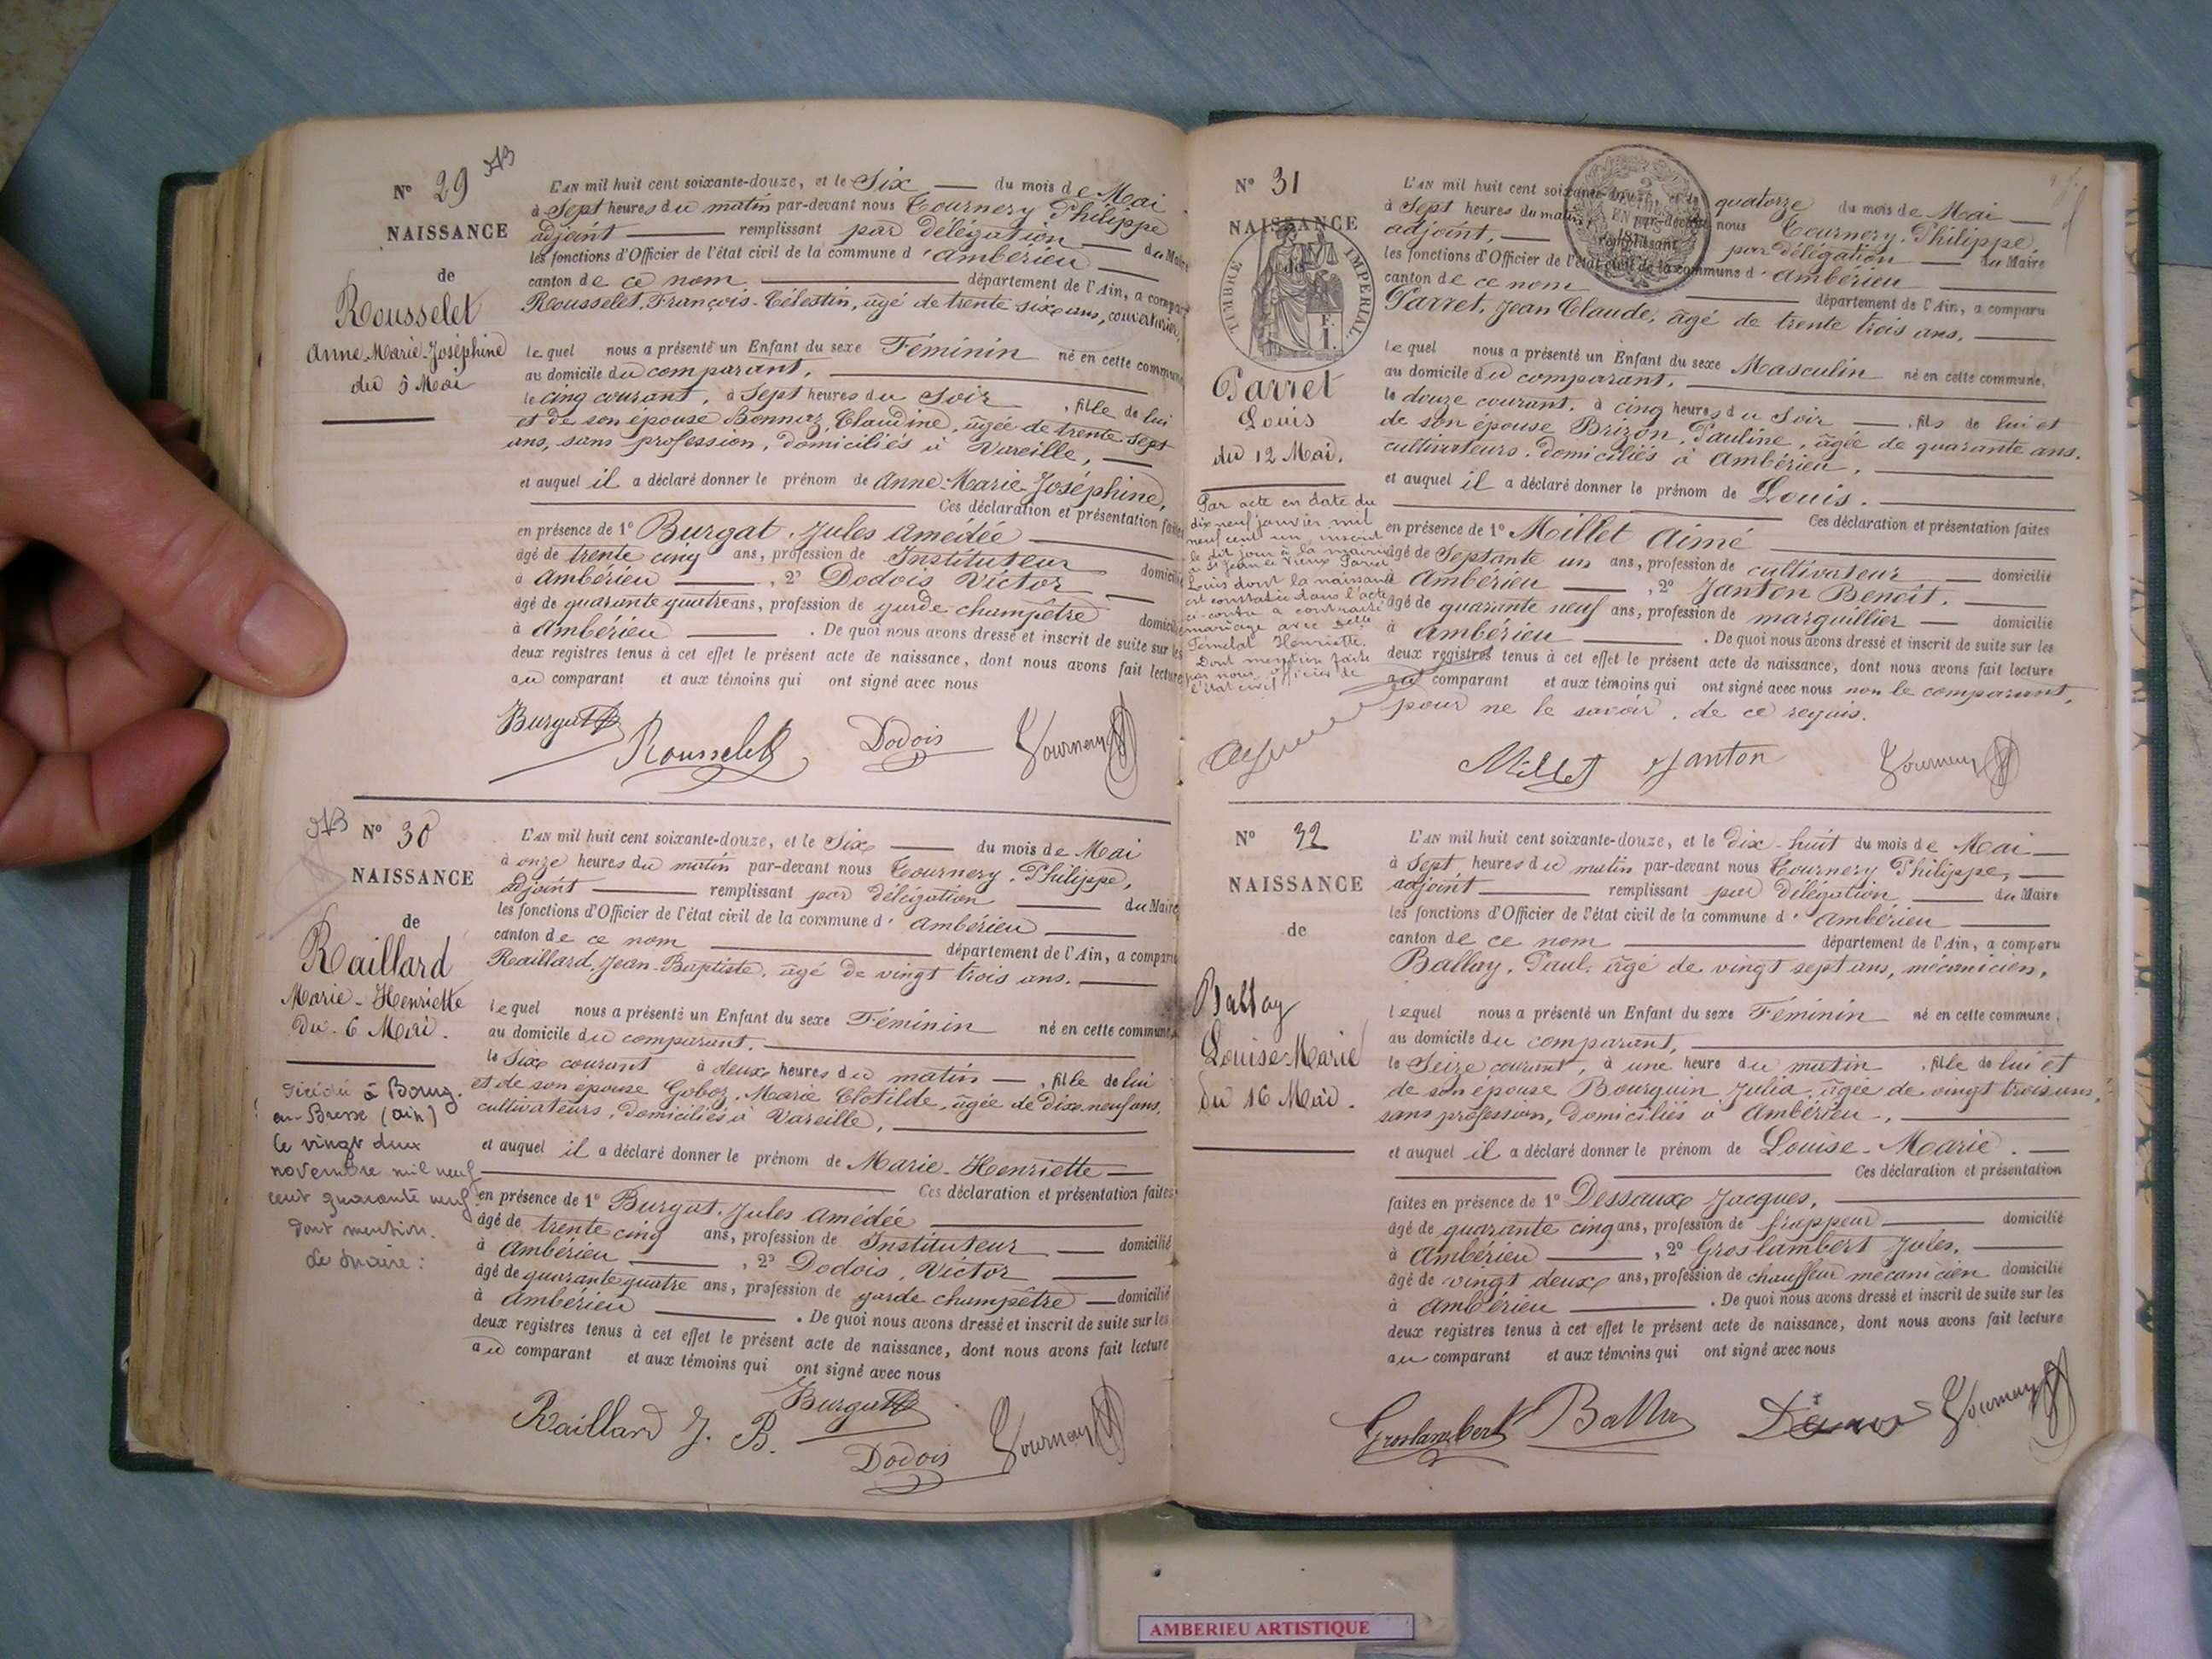 N° 29
NAISSANCE
de
Rousselet
Anne-Marie-Joséphine
du 5 Mai
L'AN mil huit cent soixante-douze, et le Six du mois de Mai
à Sept heures du matin par-devant nous Tournery Philippe
adjoint remplissant par délégation du Maire
les fonctions d'Officier de l'état civil de la commune d'Ambérieu
canton de ce nom département de l'Ain, a comparu
Rousselet, François-Célestin, âgé de trente six ans, couverturier,
lequel nous a présenté un Enfant du sexe Féminin né en cette commune
au domicile du comparant,
le cinq courant, à Sept heures du Soir, fille de lui
et de son épouse Bonnaz, Claudine, âgée de trente sept
ans, sans profession, domiciliés à Vareille,
et auquel il a déclaré donner le prénom de Anne-Marie-Joséphine,
Ces déclaration et présentation faites
en présence de 1° Burgat, Jules Amédée
âgé de trente cinq ans, profession de Instituteur domicilié
à Ambérieu, 2° Dodois Victor
âgé de quarante quatre ans, profession de garde champêtre domicilié
à Ambérieu. De quoi nous avons dressé et inscrit de suite sur les
deux registres tenus à cet effet le présent acte de naissance, dont nous avons fait lecture
au comparant et aux témoins qui ont signé avec nous
Burgat Rousselet Dodois Tournery
N° 30
NAISSANCE
de
Raillard
Marie-Henriette
du 6 Mai.
décédée à Bourg-
en-Bresse (Ain)
le vingt deux
novembre mil neuf
cent quarante neuf
dont mention.
Le Maire :
L'AN mil huit cent soixante-douze, et le Six du mois de Mai
à onze heures du matin par-devant nous Tournery, Philippe,
adjoint remplissant par délégation du Maire
les fonctions d'Officier de l'état civil de la commune d'Ambérieu
canton de ce nom département de l'Ain, a comparu
Raillard, Jean-Baptiste, âgé de vingt trois ans.
lequel nous a présenté un Enfant du sexe Féminin né en cette commune
au domicile du comparant.
le Six courant à deux heures du matin, fille de lui
et de son épouse Goboz, Marie Clotilde, âgée de dix neuf ans,
cultivateurs, domiciliés à Vareille,
et auquel il a déclaré donner le prénom de Marie-Henriette
Ces déclaration et présentation faites
en présence de 1° Burgat, Jules Amédée
âgé de trente cinq ans, profession de Instituteur domicilié
à Ambérieu, 2° Dodois, Victor
âgé de quarante quatre ans, profession de garde champêtre domicilié
à Ambérieu. De quoi nous avons dressé et inscrit de suite sur les
deux registres tenus à cet effet le présent acte de naissance, dont nous avons fait lecture
au comparant et aux témoins qui ont signé avec nous
Raillard J. B. Burgat Dodois Tournery
N° 31
NAISSANCE
de
TIMBRE IMPERIAL
Parret
Louis
du 12 Mai.
Par acte en date du
dix neuf janvier mil
neuf cent un inscrit
le dit jour à la mairie
de St Jean le Vieux Parret
Louis dont la naissance
est constatée dans l'acte
ci-contre a contracté
mariage avec
Henriette.
Dont mention faite
par nous officier de
l'état civil
L'AN mil huit cent soixante-douze, et le quatorze du mois de Mai
à Sept heures du matin par-devant nous Tournery, Philippe,
adjoint, remplissant par délégation du Maire
les fonctions d'Officier de l'état civil de la commune d'Ambérieu
canton de ce nom département de l'Ain, a comparu
Parret, Jean Claude, âgé de trente trois ans,
lequel nous a présenté un Enfant du sexe Masculin né en cette commune,
au domicile du comparant.
le douze courant, à cinq heures du Soir, fils de lui et
de son épouse Brizon, Pauline, âgée de quarante ans.
cultivateurs, domiciliés à Ambérieu,
et auquel il a déclaré donner le prénom de Louis.
Ces déclaration et présentation faites
en présence de 1° Millet Aimé
âgé de Septante un ans, profession de cultivateur domicilié
à Ambérieu, 2° Janton Benoît.
âgé de quarante neuf ans, profession de marguillier domicilié
à Ambérieu. De quoi nous avons dressé et inscrit de suite sur les
deux registres tenus à cet effet le présent acte de naissance, dont nous avons fait lecture
au comparant et aux témoins qui ont signé avec nous non le comparant,
pour ne le savoir, de ce requis.
Millet Janton Tournery
N° 32
NAISSANCE
de
Ballay
Louise-Marie
du 16 Mai.
L'AN mil huit cent soixante-douze, et le dix-huit du mois de Mai
à Sept heures du matin par-devant nous Tournery Philippe,
adjoint remplissant par délégation du Maire
les fonctions d'Officier de l'état civil de la commune d'Ambérieu
canton de ce nom département de l'Ain, a comparu
Ballay, Paul, âgé de vingt sept ans, mécanicien,
lequel nous a présenté un Enfant du sexe Féminin né en cette commune,
au domicile du comparant,
le Seize courant, à une heure du matin, fille de lui et
de son épouse Bourquin Julia, âgée de vingt trois ans,
sans profession, domiciliés à Ambérieu,
et auquel il a déclaré donner le prénom de Louise-Marie.
Ces déclaration et présentation
faites en présence de 1° Dessaux Jacques,
âgé de quarante cinq ans, profession de frappeur domicilié
à Ambérieu, 2° Groslambert Jules,
âgé de vingt deux ans, profession de chauffeur mécanicien domicilié
à Ambérieu. De quoi nous avons dressé et inscrit de suite sur les
deux registres tenus à cet effet le présent acte de naissance, dont nous avons fait lecture
au comparant et aux témoins qui ont signé avec nous
Groslambert Ballay Tournery
AMBERIEU ARTISTIQUE